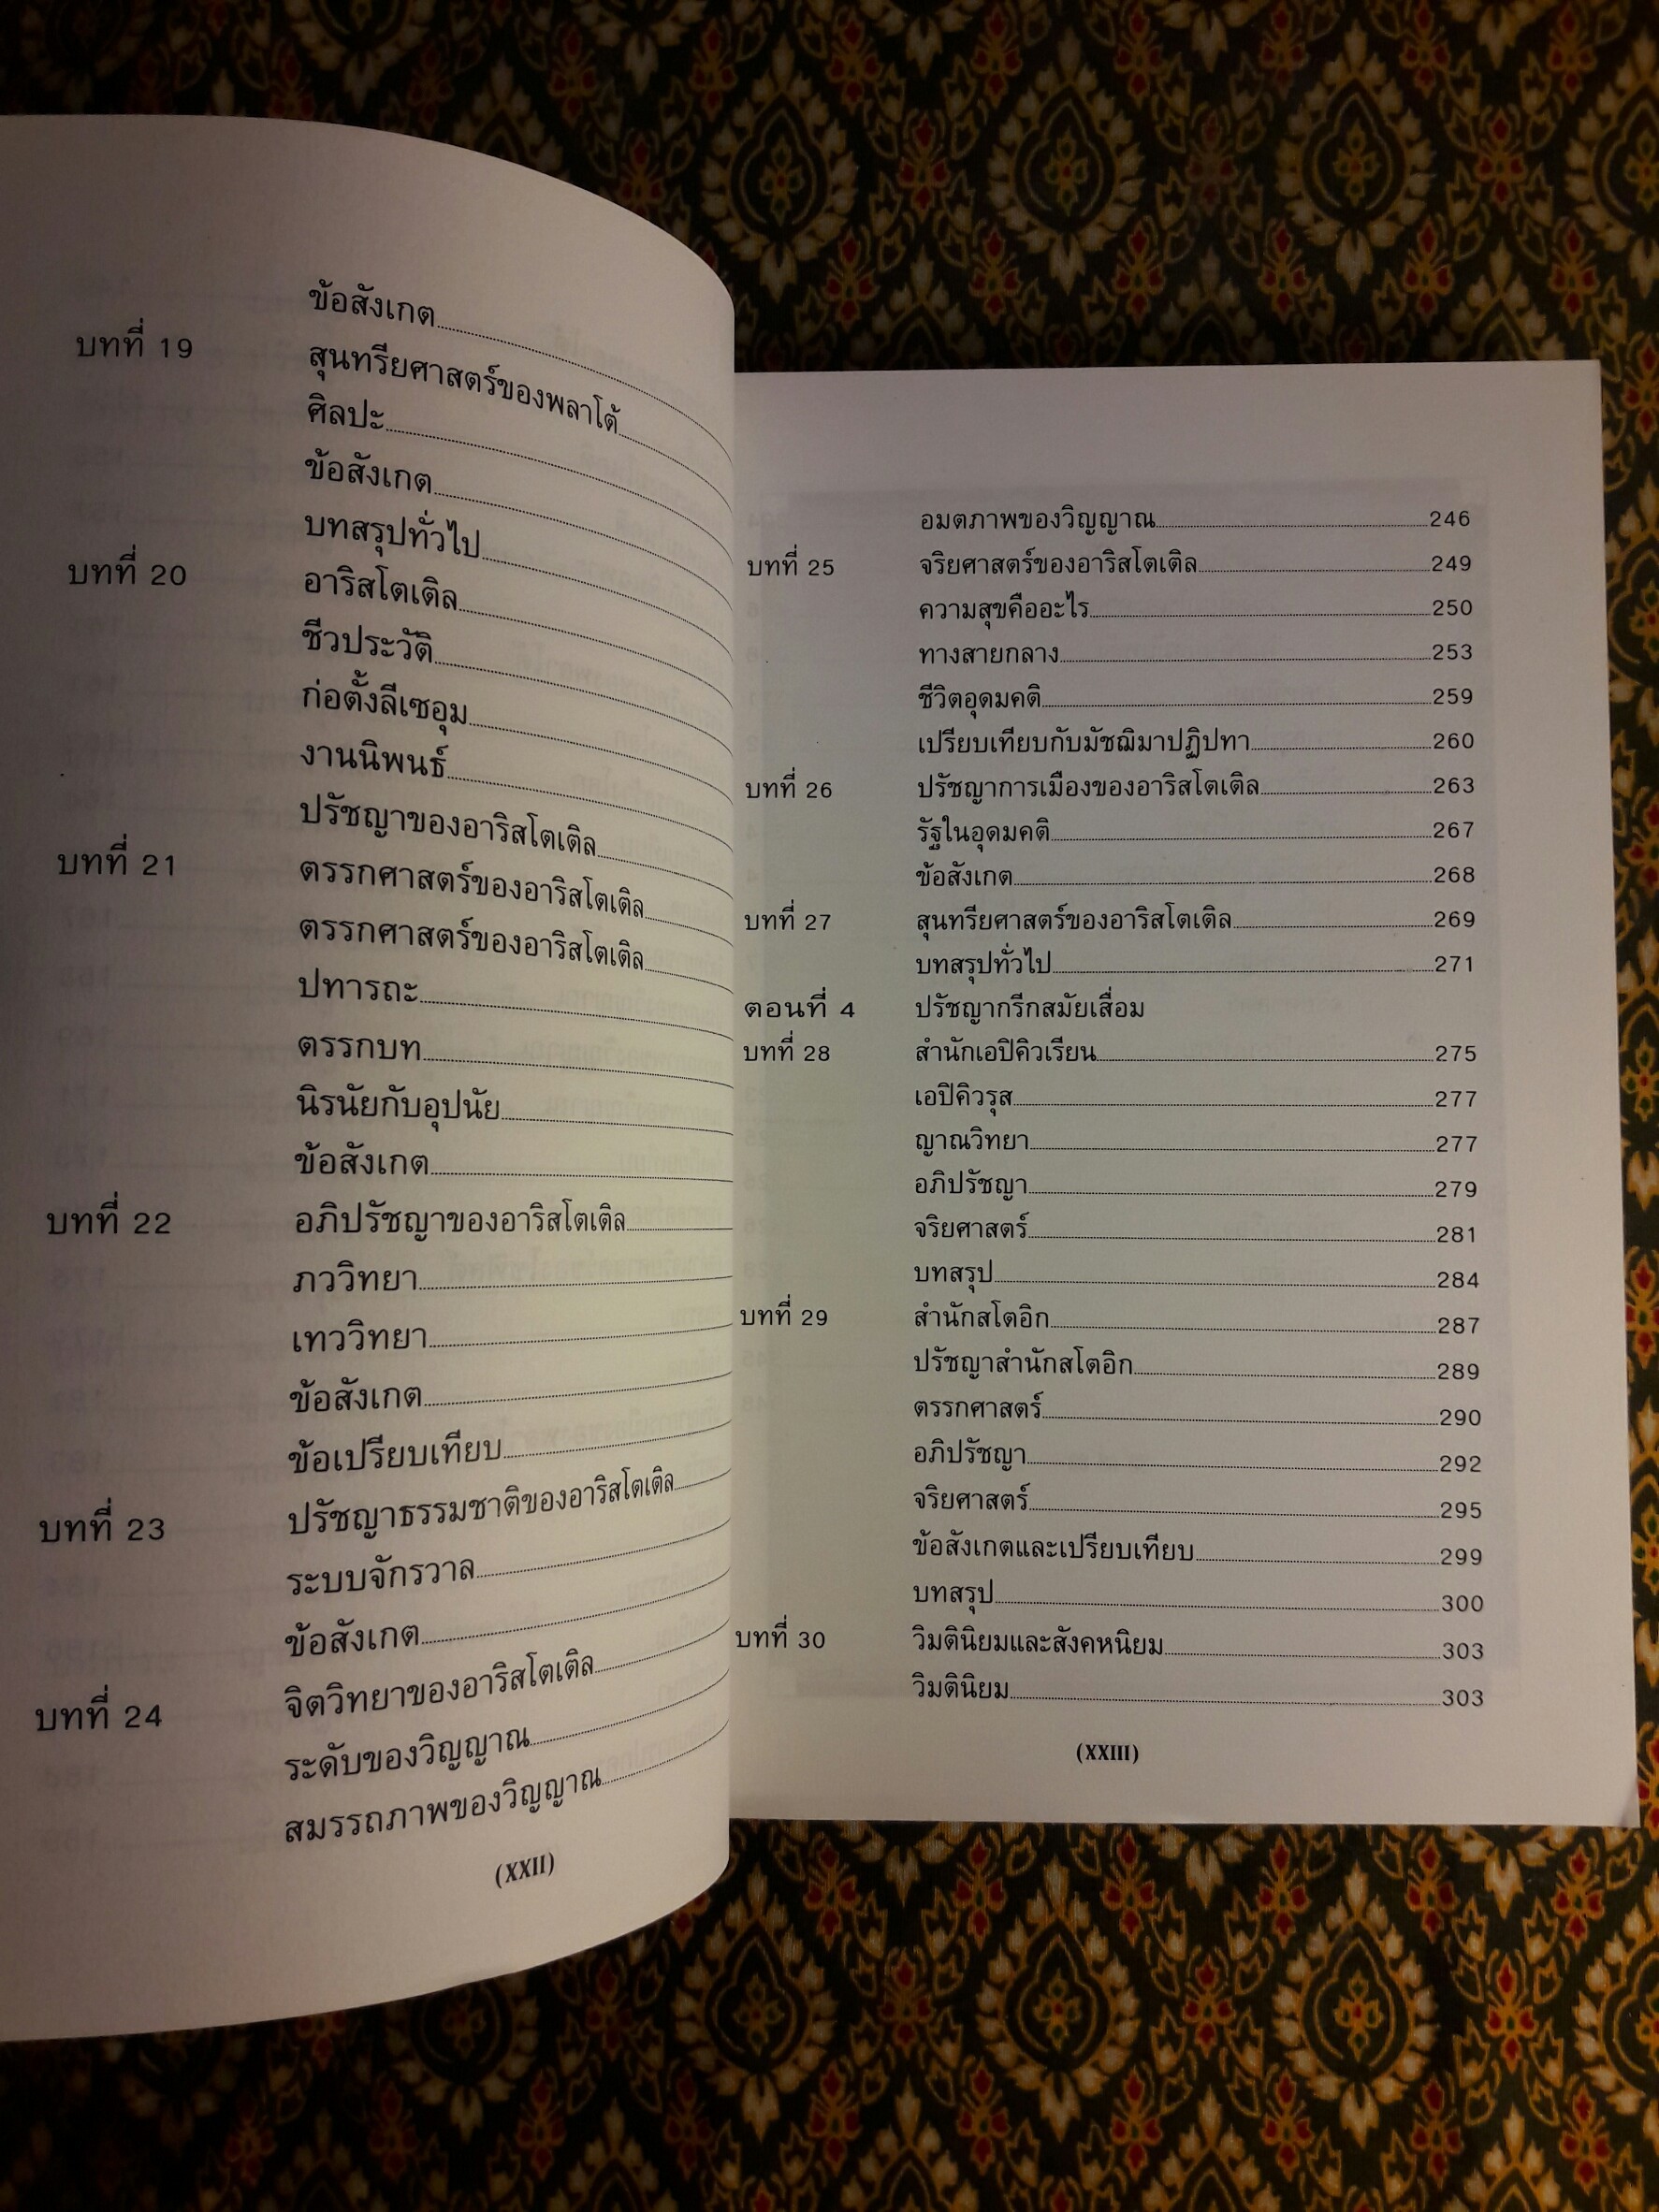 ข้อสังเกต
บทที่ 19 สุนทรียศาสตร์ของพลาโต้
ศิลปะ
ข้อสังเกต
บทสรุปทั่วไป
บทที่ 20 อาริสโตเติล
ชีวประวัติ
ก่อตั้งลีเซอุม
งานนิพนธ์
ปรัชญาของอาริสโตเติล
บทที่ 21 ตรรกศาสตร์ของอาริสโตเติล
ตรรกศาสตร์ของอาริสโตเติล
ปทารถะ
ตรรกบท
นิรนัยกับอุปนัย
ข้อสังเกต
บทที่ 22 อภิปรัชญาของอาริสโตเติล
ภววิทยา
เทววิทยา
ข้อสังเกต
ข้อเปรียบเทียบ
บทที่ 23 ปรัชญาธรรมชาติของอาริสโตเติล
ระบบจักรวาล
ข้อสังเกต
บทที่ 24 จิตวิทยาของอาริสโตเติล
ระดับของวิญญาณ
สมรรถภาพของวิญญาณ
(XXII)
อมตภาพของวิญญาณ 246
บทที่ 25 จริยศาสตร์ของอาริสโตเติล 249
ความสุขคืออะไร 250
ทางสายกลาง 253
ชีวิตอุดมคติ 259
เปรียบเทียบกับมัชฌิมาปฏิปทา 260
บทที่ 26 ปรัชญาการเมืองของอาริสโตเติล 263
รัฐในอุดมคติ 267
ข้อสังเกต 268
บทที่ 27 สุนทรียศาสตร์ของอาริสโตเติล 269
บทสรุปทั่วไป 271
ตอนที่ 4 ปรัชญากรีกสมัยเสื่อม
บทที่ 28 สำนักเอปิคิวเรียน 275
เอปิคิวรุส 277
ญาณวิทยา 277
อภิปรัชญา 279
จริยศาสตร์ 281
บทสรุป 284
บทที่ 29 สำนักสโตอิก 287
ปรัชญาสำนักสโตอิก 289
ตรรกศาสตร์ 290
อภิปรัชญา 292
จริยศาสตร์ 295
ข้อสังเกตและเปรียบเทียบ 299
บทสรุป 300
บทที่ 30 วิมตินิยมและสังคหนิยม 303
วิมตินิยม 303
(XXIII)